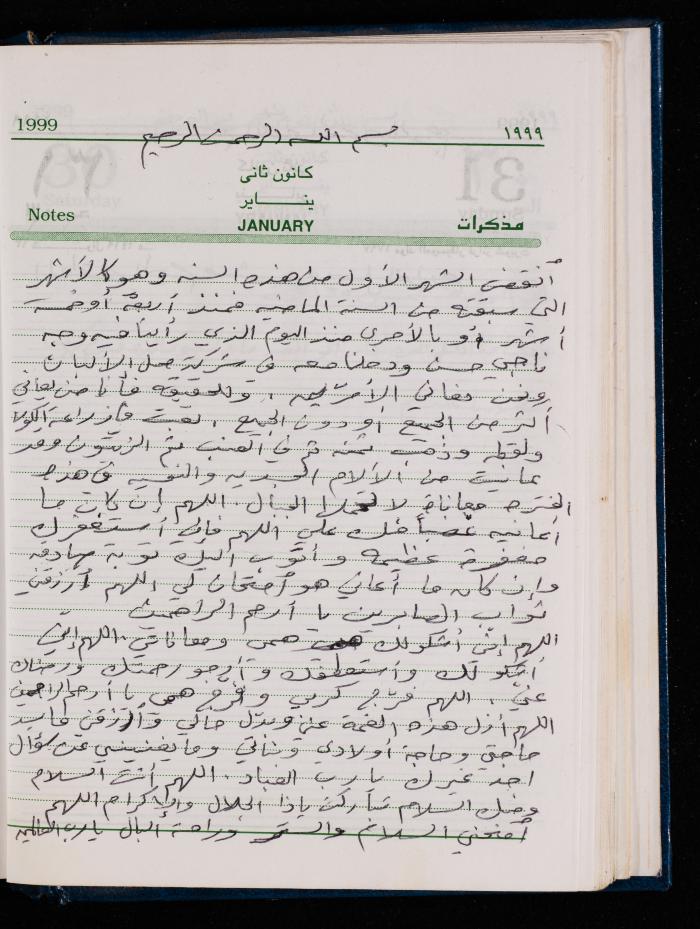 1999
١٩٩٩
بسم الله الرحمن الرحيم
كانون ثانى
ينـــاير
Notes
JANUARY
مذكرات
31
أنقضى الشهر الأول من هذه السنه وهو كالأشهر
التي سبقته من السنة الماضيه فمنذ أربعة أو خمسة
أشهر أو بالأحرى منذ اليوم الذي رأينا فيه وجه
ناجي حسن ودخلنا معه في شركة عمل الألبان
ونحن نعاني الأمرّين، وللحقيقه فأنا من يعاني
أكثر من الجميع أو دون الجميع، تعبت في زراعة
ولقطه وذهب ثمنه ثم في العنب ثم الزيتون وقد
عانيت من الألام الجسديه والنفسيه في هذه
الفتره معاناة لا تحتملها الجبال. اللهم إن كان ما
أعانيه غضباً منك علي اللهم فإني أستغفرك
مغفرة عظيمه وأتوب إليك توبه صادقه
وإن كان ما أعاني هو أمتحان لي اللهم أرزقني
ثواب الصابرين يا أرحم الراحمين
اللهم إني أشكو لك همي ومعاناتي. اللهم إني
أشكو لك وأستعطفك وأرجو رحمتك ورضاك
عنيّ. اللهم فرّج كربي وفرّج همي يا أرحم الراحمين
اللهم أزل هذه الغمة عني وبدّل حالي وأرزقني ما يسد
حاجتي وحاجة أولادي وبناتي وما يغنيني عن سؤال
احد غيرك يا رب العباد. اللهم أنت السلام
ومنك السلام تباركت ياذا الجلال والإكرام اللهم
أمنحني السلام والستر وراحة البال يا رب العالمين